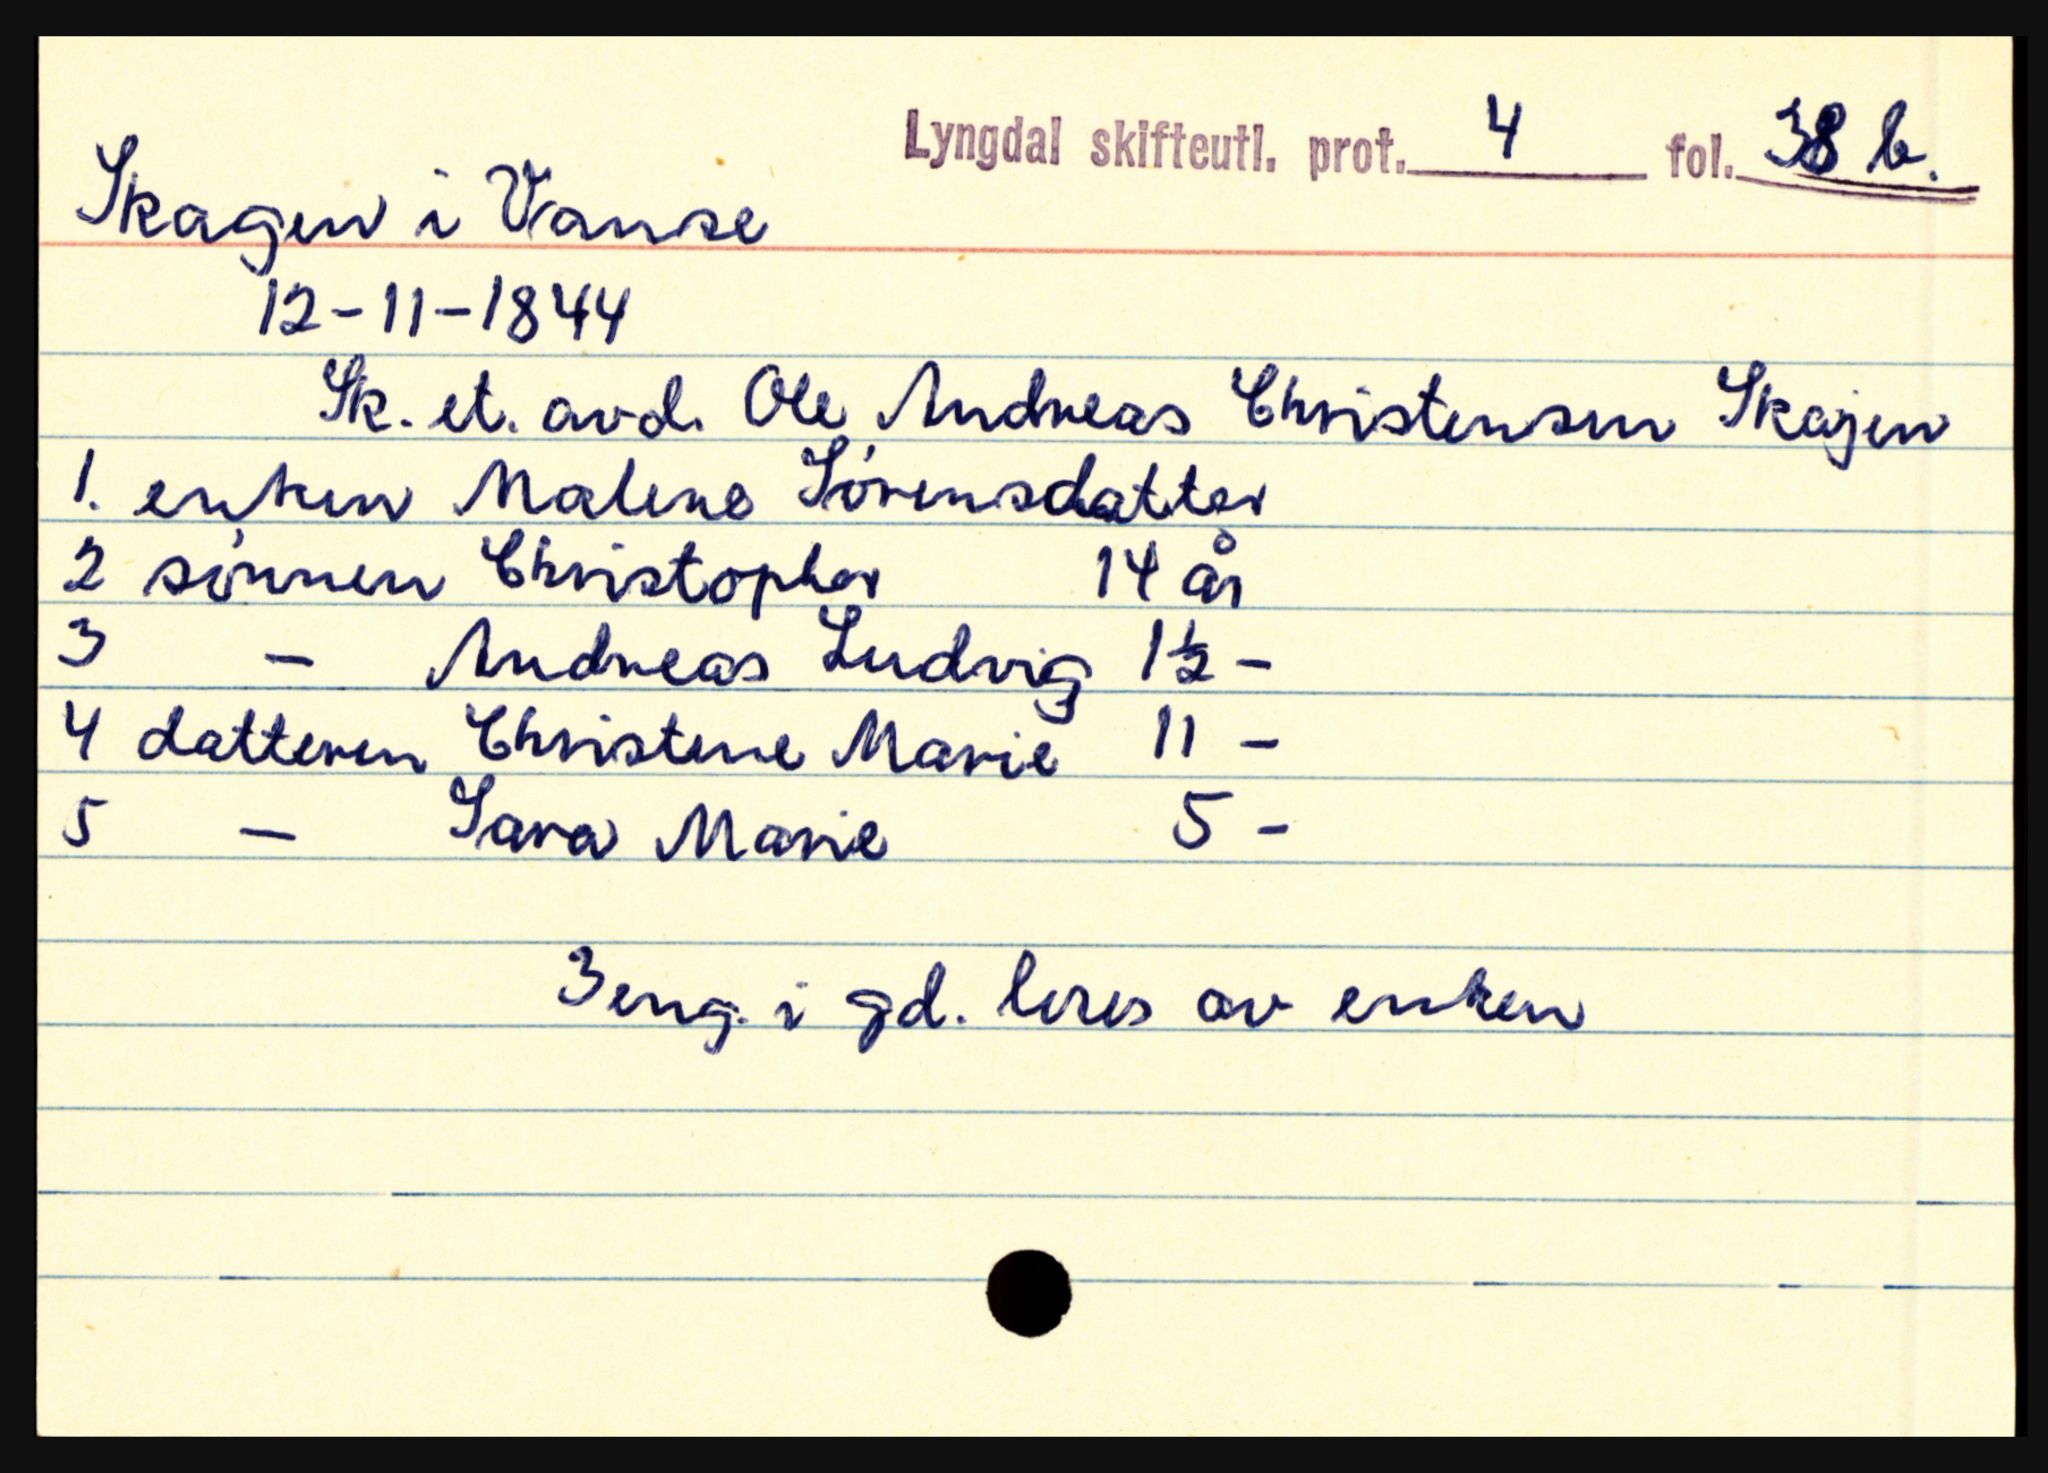 Lyngdal skifteutl. prot. 4 fol. 38 b.
Skagen i Vanse
12-11-1844
Sk. et. avd. Ole Andreas Christensen Skagen
1. enken Malene Sørensdatter
2 sønnen Christopher 14 år
3 - Andreas Ludvig 1½ -
4 datteren Christene Marie 11 -
5 - Sara Marie 5 -
3 eng. i gd. loses av enken